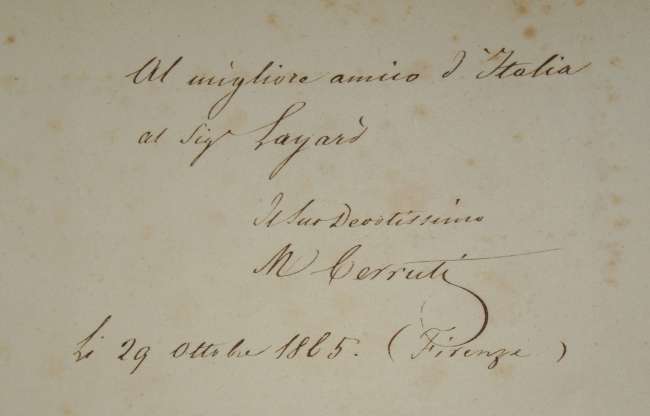 Al migliore amico d'Italia
al Sigr Layard
Il Suo Devotissimo
M Cerruti
Li 29 Ottobre 1865. (Firenze)